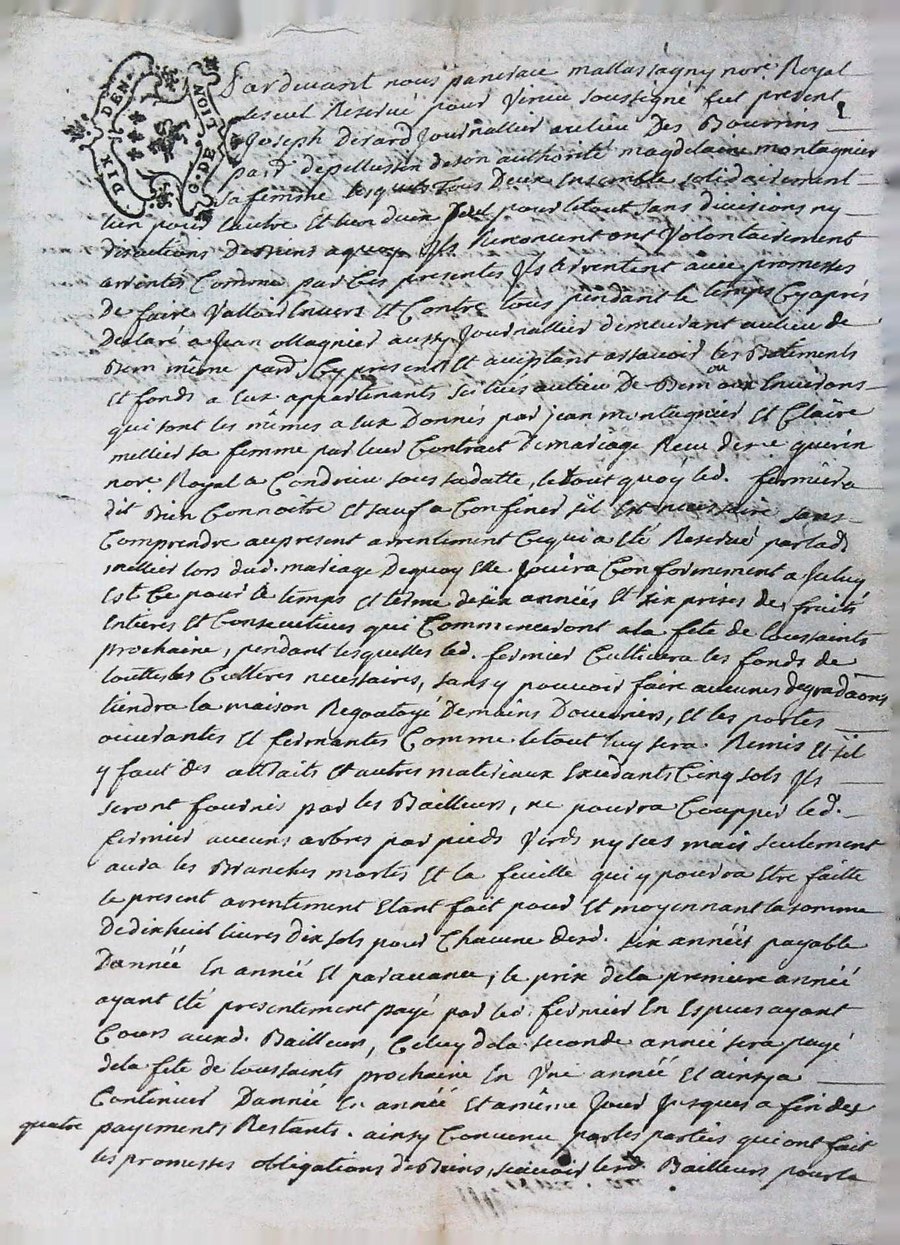 DIX DEN. G. DE NOIT
Pardevant nous pancrace mallassagny nore. Royal
et seul Reservé pour Virieu soussigné fut present
Joseph Derard Journallier au lieu Des Bourrins
parr. de pellussin de son authorité magdelaine montagnier
sa femme lesquels tous Deux Ensemble solidairement
l'un pour l'autre Et l'un deux seul pour le tout sans divisions ny
discutions De biens a quoy Ils Renoncent ont Volontairement
arrentés Comme par Ces presentes Ils arrentent avec promesses
De faire Valloir Envers Et Contre tous pendant le temps Cy aprés
Declaré a Jean ollagnier aussy Journallier demeurant au lieu de
Bem même parr. Cy present Et acceptant assavoir les Batiments
Et fonds a Eux appartenants scitués au lieu De Bem ou aux Environs
qui sont les mêmes a Eux Donnés par jean montagnier Et Claire
mellier sa femme par leur Contract De mariage Receu de me guerin
nore. Royal a Condrieu sous sa datte, le tout quoy led. fermier a
dit Bien Connoitre Et sauf a Confiner s'il Est necessaire sans
Comprendre au present arrentement Ce qui a Eté Reservé par lad.
mellier lors dud. mariage De quoy Elle Jouira Conformement a Iceluy
Est Ce pour le temps Et terme de six années Et six prises de fruits
Entieres Et Consecutives qui Commenceront a la fete de toussaints
prochaine, pendant lesquelles led. fermier Cultivera les fonds de
touttes les Cultures necessaires, sans y pouvoir faire aucunes degradaons
tiendra la maison Regoatoyé De mains D'ouvriers, Et les portes
ouvrantes Et fermantes Comme le tout luy sera Remis Et s'il
y faut des attraits Et autres materiaux Exedants Cinq sols Ils
seront fournis par les Bailleurs, ne pourra Coupper led.
fermier aucuns arbres par pieds Verds ny secs mais seulement
aura les Branches mortes Et la feuille qui y pourra Etre faitte
le present arrentement Etant fait pour Et moyennant la somme
De dix huit livres Dix sols pour Chacune desd. six années payable
D'année En année Et par avance, le prix de la premiere année
ayant Eté presentement payé par led. fermier En Especes ayant
Cours auxd. Bailleurs, Celuy de la seconde année sera payé
de la fete de toussaints prochaine En Une année Et ainsy a
Continuer D'année En année Et a même Jour Jusques a fin des
quatre payements Restants. ainsy Convenu par les parties qui ont fait
les promesses obligations de Biens, scavoir lesd. Bailleurs pour la